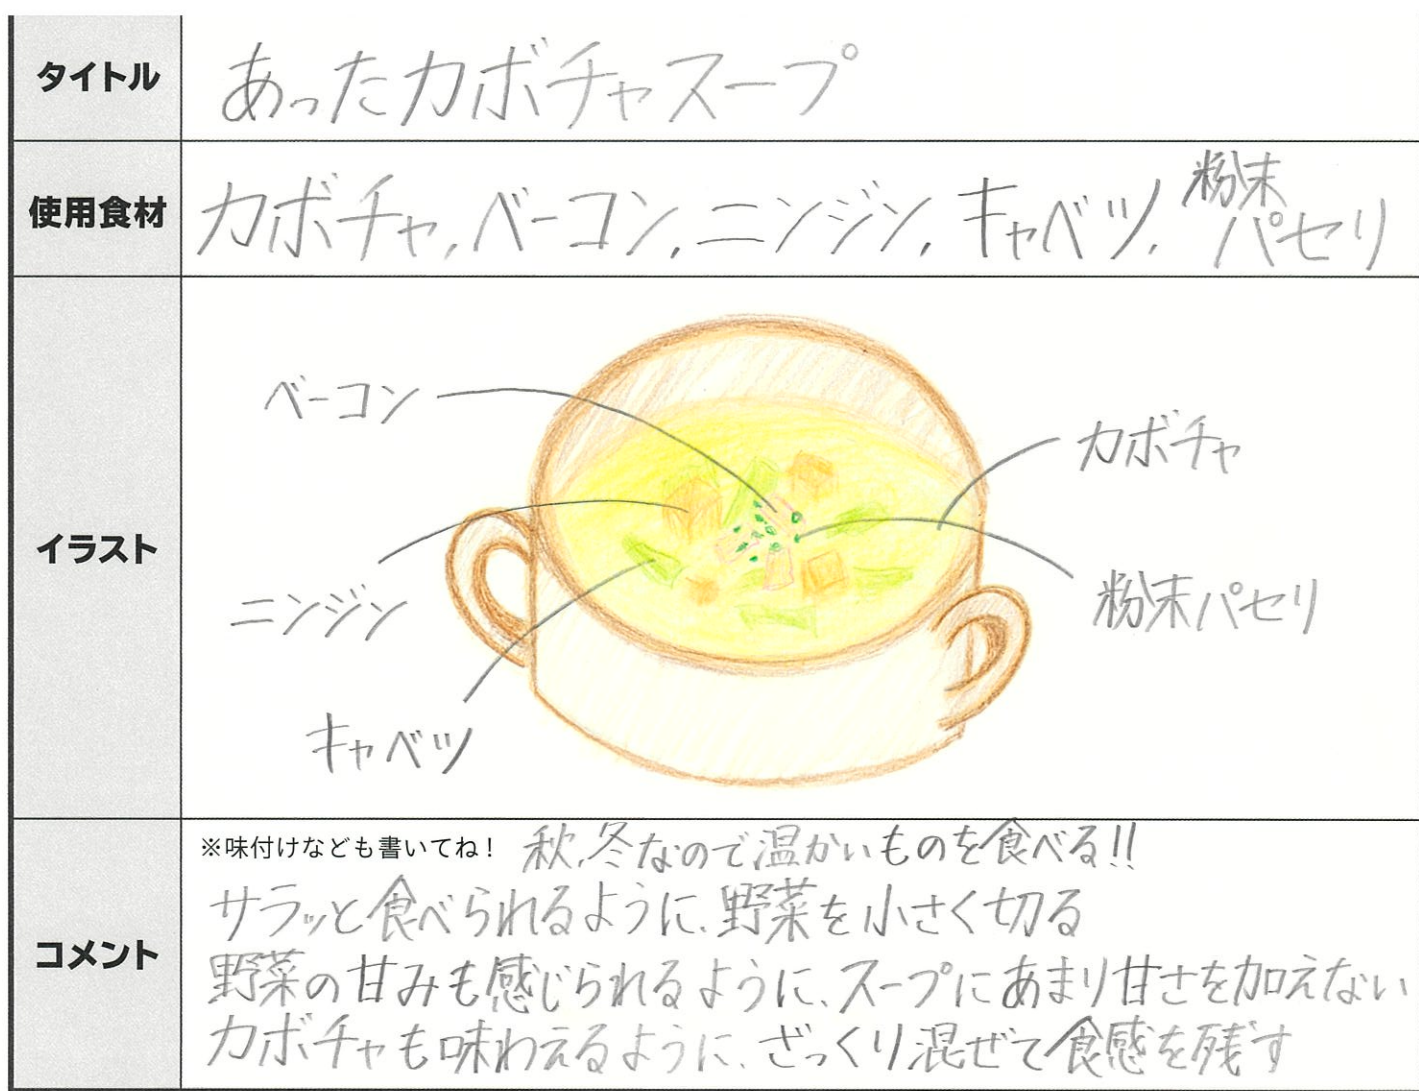 タイトル
あったカボチャスープ
使用食材
カボチャ,ベーコン,ニンジン,キャベツ,粉末パセリ
イラスト
ベーコン
カボチャ
ニンジン
粉末パセリ
キャベツ
コメント
※味付けなども書いてね! 秋,冬なので温かいものを食べる!!
サラッと食べられるように、野菜を小さく切る
野菜の甘みも感じられるように、スープにあまり甘さを加えない
カボチャも味わえるように、ざっくり混ぜて食感を残す